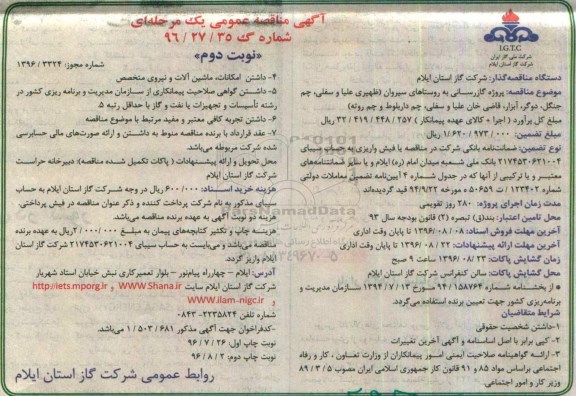 آگهی مناقصه عمومی یک مرحله‌ای
شماره گ ۳۵ / ۲۷ / ۹۶
«نوبت دوم»
شماره مجوز: ۳۳۲۴ / ۱۳۹۶
I.G.T.C
شرکت ملی گاز ایران
شرکت گاز استان ایلام
دستگاه مناقصه‌گذار: شرکت گاز استان ایلام
موضوع مناقصه: پروژه گازرسانی به روستاهای سیروان (ظهیری علیا و سفلی، چم
جنگل، دوگر، آبزار، قاضی خان علیا و سفلی، چم داربلوط و چم روته)
مبلغ کل برآورد (اجرا + کالای عهده پیمانکار) ۲۵۷ / ۴۴۸ / ۴۱۹ / ۳۲ ریال
مبلغ تضمین: ۰۰۰ / ۴۷۳ / ۱/۶۲۰ ریال
نوع تضمین: ضمانتنامه بانکی شرکت در مناقصه یا فیش واریزی به حساب سیبای
۲۱۷۴۵۳۰۶۲۱۰۰۴ بانک ملی شعبه میدان امام (ره) ایلام و یا سایر ضمانتنامه‌های
معتبر و یا ترکیبی از آنها که در جدول شماره ۴ آیین‌نامه تضمین معاملات دولتی
شماره ۱۲۳۴۰۲ / ت ۵۰۶۵۹ ه مورخه ۹۴/۹/۲۲ قید گردیده‌اند
مدت زمان اجرای پروژه: ۲۸۰ روز تقویمی
محل تامین اعتبار: بند(ق) تبصره (۲) قانون بودجه سال ۹۳
آخرین مهلت فروش اسناد: ۰۸ / ۰۸ / ۱۳۹۶ تا پایان وقت اداری
آخرین مهلت ارائه پیشنهادات: ۲۲ / ۰۸ / ۱۳۹۶ تا پایان وقت اداری
زمان گشایش پاکات: ۲۳ / ۰۸ / ۱۳۹۶ ساعت ۹ صبح
محل گشایش پاکات: سالن کنفرانس شرکت گاز استان ایلام
* از بخشنامه شماره ۱۵۸۷۶۴ / ۹۴ مورخ ۱۳ / ۷ / ۱۳۹۴ سازمان مدیریت و
برنامه‌ریزی کشور جهت تعیین برنده استفاده می‌گردد.
شرایط متقاضیان
۱-داشتن شخصیت حقوقی
۲- کپی برابر با اصل اساسنامه و آگهی آخرین تغییرات
۳- ارائه گواهینامه صلاحیت ایمنی امور پیمانکاران از وزارت تعاون ، کار و رفاه
اجتماعی براساس مواد ۸۵ و ۹۱ قانون کار جمهوری اسلامی ایران مصوب ۵ / ۳ / ۸۹
وزیر کار و امور اجتماعی.
۴- داشتن امکانات، ماشین آلات و نیروی متخصص
۵- داشتن گواهی صلاحیت پیمانکاری از سازمان مدیریت و برنامه ریزی کشور در
رشته تأسیسات و تجهیزات یا نفت و گاز با حداقل رتبه ۵.
۶- داشتن تجربه کافی معتبر و مفید مرتبط با موضوع مناقصه
۷- عقد قرارداد با برنده مناقصه منوط به داشتن و ارائه صورت‌های مالی حسابرسی
شده شرکت مربوطه می‌باشد.
محل تحویل و ارائه پیشنهادات ( پاکات تکمیل شده مناقصه): دبیرخانه حراست
شرکت گاز استان ایلام
هزینه خرید اسناد: ۶۰۰/۰۰۰ ریال در وجه شرکت گاز استان ایلام به حساب
سیبای مذکور به نام شرکت پرداخت کننده و ذکر عنوان مناقصه در فیش پرداختی.
هزینه دو نوبت آگهی به عهده برنده مناقصه می‌باشد.
هزینه چاپ و تکثیر کتابچه‌های پیمان به مبلغ ۰۰۰ / ۲/۰۰۰ریال به عهده برنده
مناقصه می‌باشد و می‌بایست به حساب سیبای ۲۱۷۴۵۳۰۶۲۱۰۰۴ شرکت گاز استان
ایلام واریز گردد.
آدرس: ایلام – چهارراه پیام‌نور – بلوار تعمیرکاری نبش خیابان استاد شهریار
شرکت گاز استان ایلام سایت www.Shana.ir و http://iets.mporg.ir
و www.ilam-nigc.ir
شماره تلفن ۲۲۳۵۸۲۴-۰۸۴۳
-کدفراخوان جهت آگهی مذکور ۶۸۱ / ۵۰۳ / ۱ می‌باشد.
نوبت چاپ اول: ۲۶ / ۷ / ۹۶
نوبت چاپ دوم: ۲ / ۸ / ۹۶
روابط عمومی شرکت گاز استان ایلام